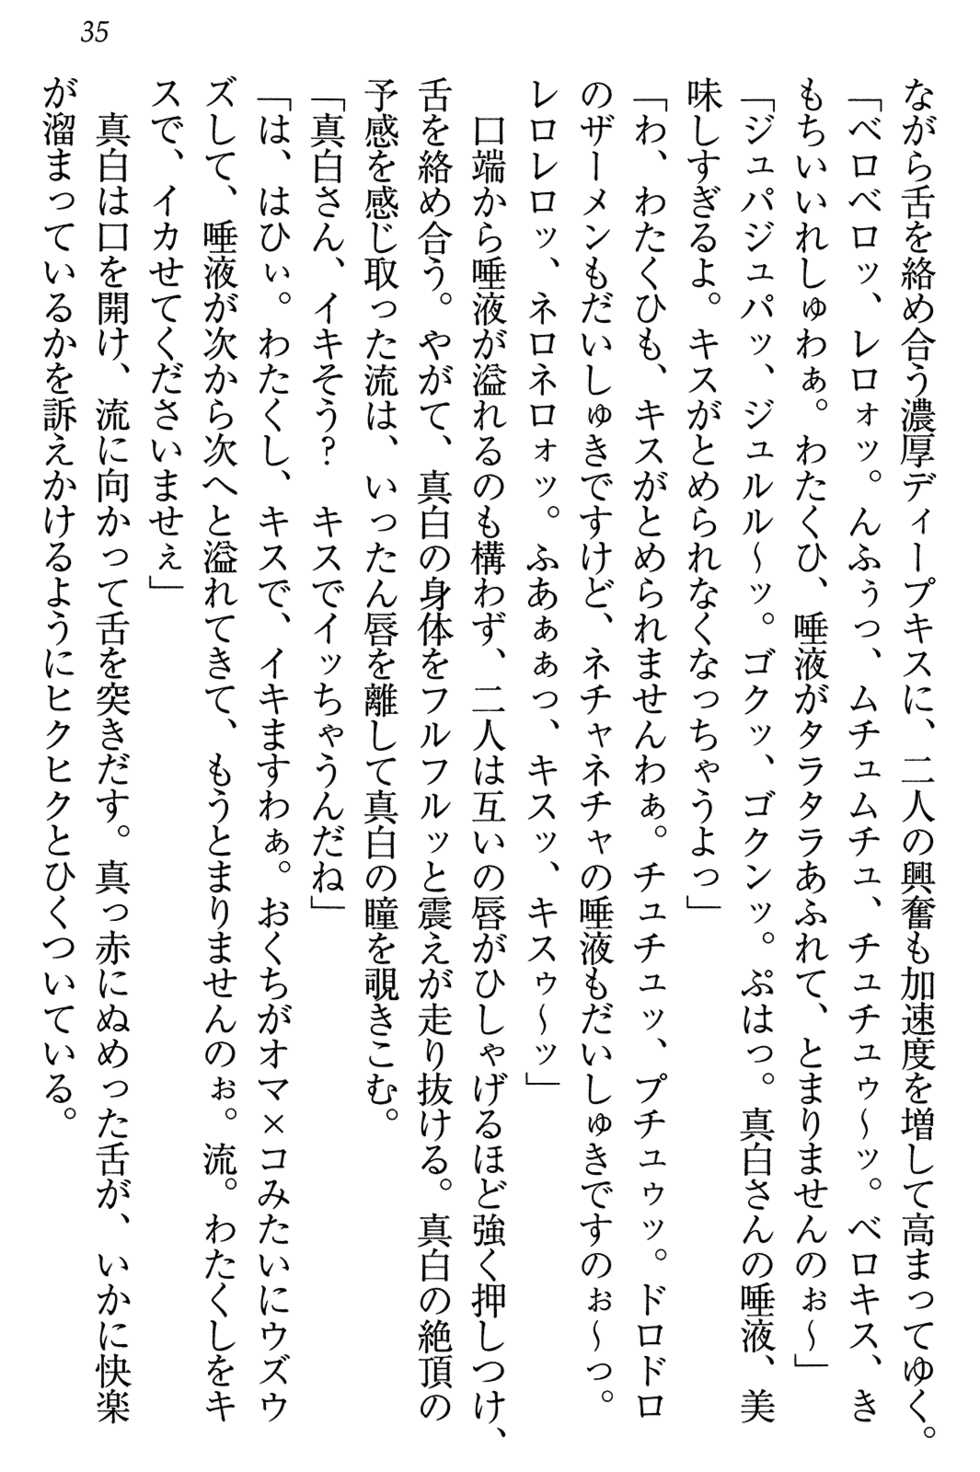 35
ながら舌を絡め合う濃厚ディープキスに、二人の興奮も加速度を増して高まってゆく。
「ベロベロッ、レロォッ。んふぅっ、ムチュムチュ、チュチュゥ～ッ。ベロキス、き
もちいいれしゅわぁ。わたくひ、唾液がタラタラあふれて、とまりませんのぉ～」
「ジュパジュパッ、ジュルル～ッ。ゴクッ、ゴクンッ。ぷはっ。真白さんの唾液、美
味しすぎるよ。キスがとめられなくなっちゃうよっ」
「わ、わたくひも、キスがとめられませんわぁ。チュチュッ、プチュゥッ。ドロドロ
のザーメンもだいしゅきですけど、ネチャネチャの唾液もだいしゅきですのぉ～っ。
レロレロッ、ネロネロォッ。ふあぁぁっ、キスッ、キスゥ～ッ」
　口端から唾液が溢れるのも構わず、二人は互いの唇がひしゃげるほど強く押しつけ、
舌を絡め合う。やがて、真白の身体をフルフルッと震えが走り抜ける。真白の絶頂の
予感を感じ取った流は、いったん唇を離して真白の瞳を覗きこむ。
「真白さん、イキそう？　キスでイッちゃうんだね」
「は、はひぃ。わたくし、キスで、イキますわぁ。おくちがオマ×コみたいにウズウ
ズして、唾液が次から次へと溢れてきて、もうとまりませんのぉ。流。わたくしをキ
スで、イカせてくださいませぇ」
　真白は口を開け、流に向かって舌を突きだす。真っ赤にぬめった舌が、いかに快楽
が溜まっているかを訴えかけるようにヒクヒクとひくついている。